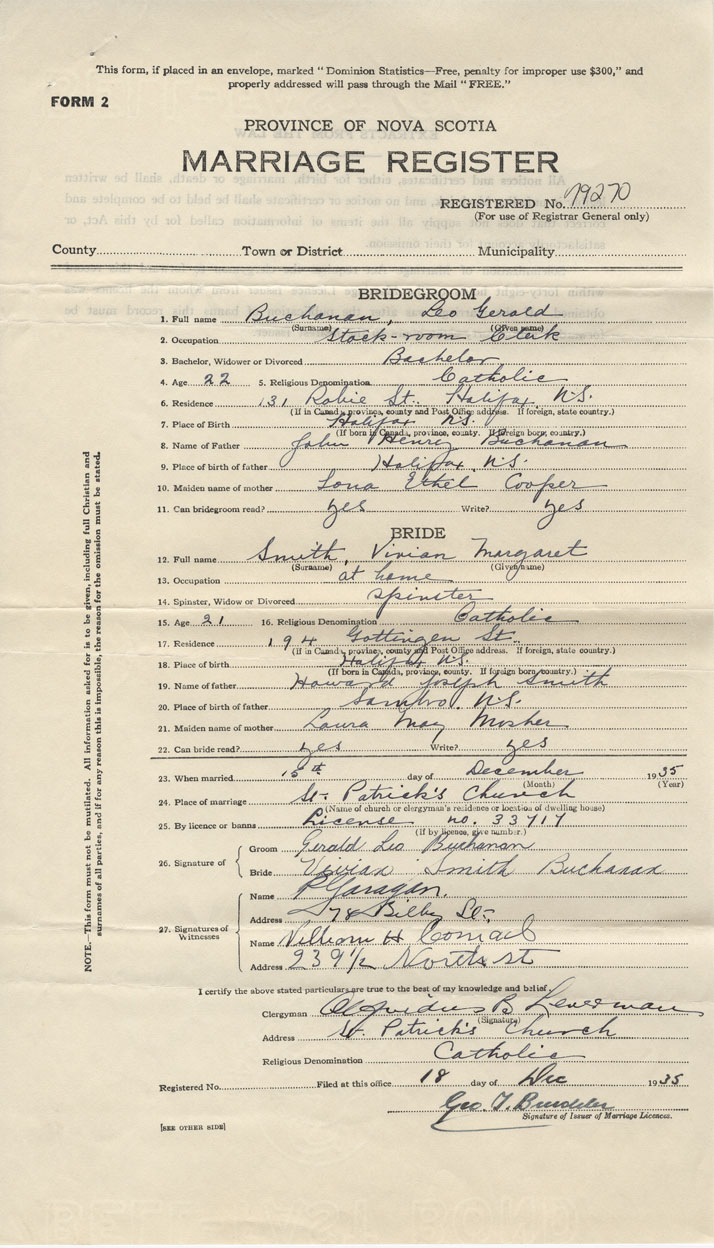 This form, if placed in an envelope, marked "Dominion Statistics—Free, penalty for improper use $300," and
properly addressed will pass through the Mail "FREE."
FORM 2
PROVINCE OF NOVA SCOTIA
MARRIAGE REGISTER
REGISTERED No. 79270
(For use of Registrar General only)
County Town or District Municipality
BRIDEGROOM
1. Full name Buchanan, Leo Gerald
(Surname) (Given name)
2. Occupation Stock-room Clerk
3. Bachelor, Widower or Divorced Bachelor
4. Age 22 5. Religious Denomination Catholic
6. Residence 131 Robie St. Halifax, N.S.
(If in Canada, province, county and Post Office address. If foreign, state country.)
7. Place of Birth Halifax N.S.
(If born in Canada, province, county. If foreign born, country.)
8. Name of Father John Henry Buchanan
9. Place of birth of father Halifax N.S.
10. Maiden name of mother Lona Ethel Cooper
11. Can bridegroom read? yes Write? yes
BRIDE
12. Full name Smith, Vivian Margaret
(Surname) (Given name)
13. Occupation at home
14. Spinster, Widow or Divorced spinster
15. Age 21 16. Religious Denomination Catholic
17. Residence 194 Gottingen St.
(If in Canada, province, county and Post Office address. If foreign, state country.)
18. Place of birth Halifax N.S.
(If born in Canada, province, county. If foreign born, country.)
19. Name of father Howard Joseph Smith
20. Place of birth of father Sambro N.S.
21. Maiden name of mother Laura May Mosher
22. Can bride read? yes Write? yes
23. When married 15th day of December 1935
(Month) (Year)
24. Place of marriage St. Patrick's Church
(Name of church or clergyman's residence or location of dwelling house)
25. By licence or banns License no. 33717
(If by licence, give number.)
26. Signature of
Groom Gerald Leo Buchanan
Bride Vivian Smith Buchanan
27. Signatures of Witnesses
Name
Address Bilby St.
Name William H Conrad
Address 239 1/2 North st
I certify the above stated particulars are true to the best of my knowledge and belief.
Clergyman B
(Signature)
Address St. Patrick's Church
Religious Denomination Catholic
Registered No. Filed at this office 18 day of Dec 1935
Geo. 
Signature of Issuer of Marriage Licences.
[SEE OTHER SIDE]
NOTE.—This form must not be mutilated. All information asked for is to be given, including full Christian and
surnames of all parties, and if for any reason this is impossible, the reason for the omission must be stated.